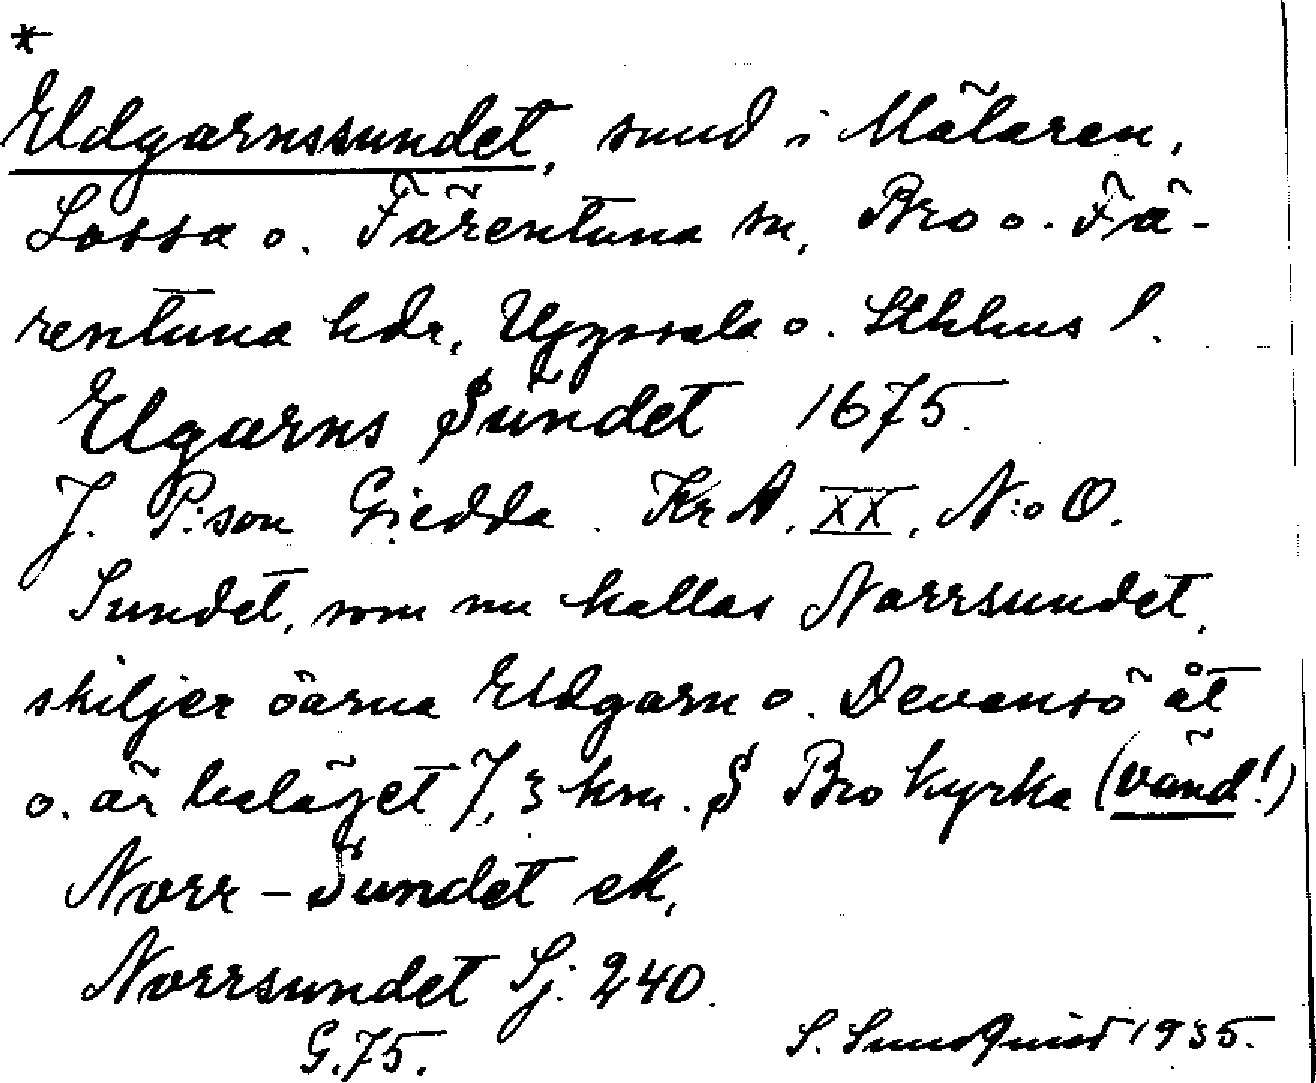 *
Eldgarnssundet, sund i Mälaren,
Lossa o. Färentuna sn, Bro o. Fä-
rentuna hdr, Uppsala o. Sthlms l.
Elgarns Sundet 1675.
J. P:son Giedda. KrA. XX, N:o O.
Sundet, som nu kallas Norrsundet,
skiljer öarna Eldgarn o. Devensö åt
o. är beläget 7,3 km. S Bro kyrka (vänd!)
Norr-Sundet ek,
Norrsundet Sj. 240.
G.75.
S. Sundquist 1935.